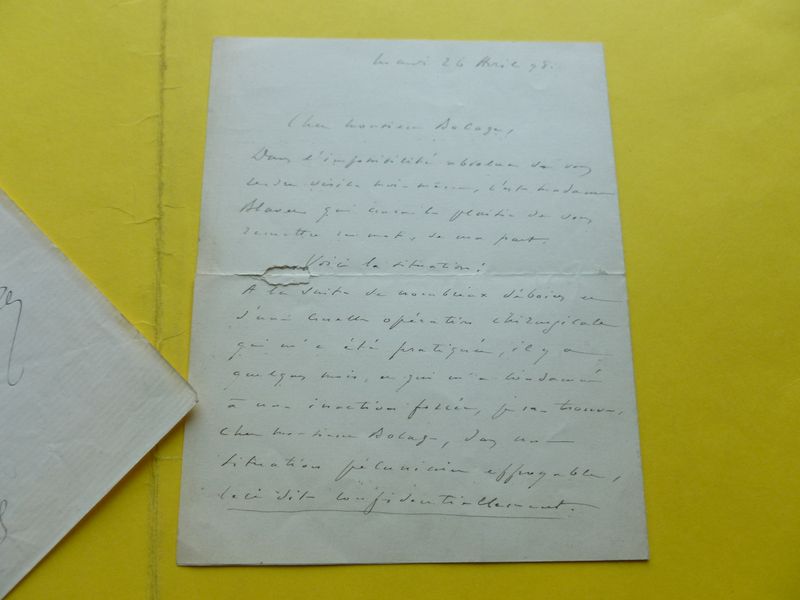 Mardi 26 Avril 98.
Cher Monsieur Bolage,
Dans l'impossibilité absolue de vous
rendre visite moi-même, c'est Madame
qui aura le plaisir de vous
remettre ce mot, de ma part.
Voici la situation :
A la suite de nombreux déboires et
d'une cruelle opération chirurgicale
qui m'a été pratiquée, il y a
quelques mois, et qui m'a condamné
à une inaction forcée, je me trouve,
cher Monsieur Bolage, dans une
situation pécuniaire effroyable,
ceci dit confidentiellement.